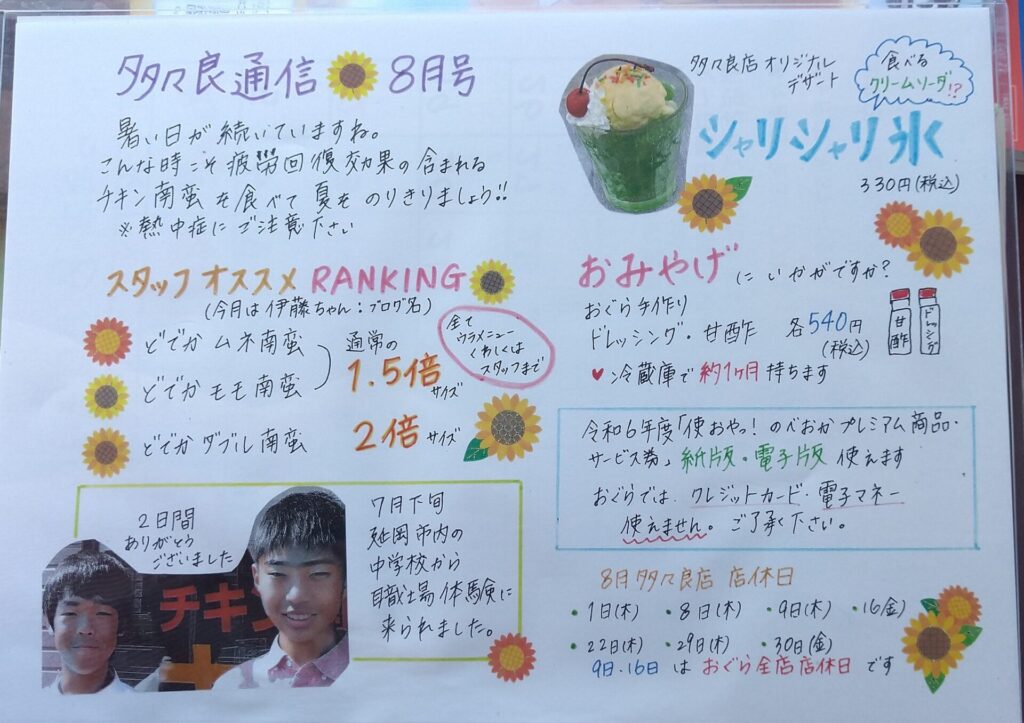 多々良通信 8月号
暑い日が続いていますね。
こんな時こそ疲労回復効果の含まれる
チキン南蛮を食べて夏をのりきりましょう!!
※熱中症にご注意下さい
スタッフオススメ RANKING
(今月は伊藤ちゃん:ブログ名)
どでか ムネ南蛮
どでか モモ南蛮
通常の
1.5倍サイズ
どでか ダブル南蛮
2倍サイズ
全て
ウラメニュー
くわしくは
スタッフまで
2日間
ありがとう
ございました
チキン
7月下旬
延岡市内の
中学校から
職場体験に
来られました。
多々良店オリジナル
デザート
食べる
クリームソーダ!?
シャリシャリ氷
330円(税込)
おみやげにいかがですか?
おぐら手作り
ドレッシング・甘酢 各540円
(税込)
甘酢
ドレッシング
♥冷蔵庫で約1ヶ月持ちます
令和6年度「使おやっ!のべおかプレミアム商品・
サービス券」紙版・電子版 使えます
おぐらでは、クレジットカード・電子マネー
使えません。ご了承下さい。
8月多々良店 店休日
・1日(木) ・8日(木) ・9日(木) ・16(金)
・22日(木) ・29日(木) ・30日(金)
9日、16日 は おぐら全店店休日 です